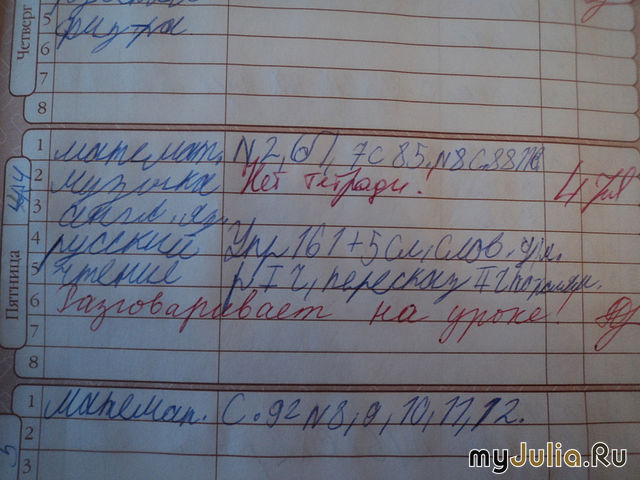 Четверг
5
физ-ра
6
7
8
Пятница
1 математ. N 2, 6П, 7 с 85, N8 с. 88
2 музыка Нет тетради. 4
3 англ. яз.
4 русский Упр 161 + 5 сл, слов.
5 чтение р I ч, пересказ II ч
6 Разговаривает на уроке!
7
8
1 Математ. С. 92 N 8, 9, 10, 11, 12.
2
3
myJulia.Ru